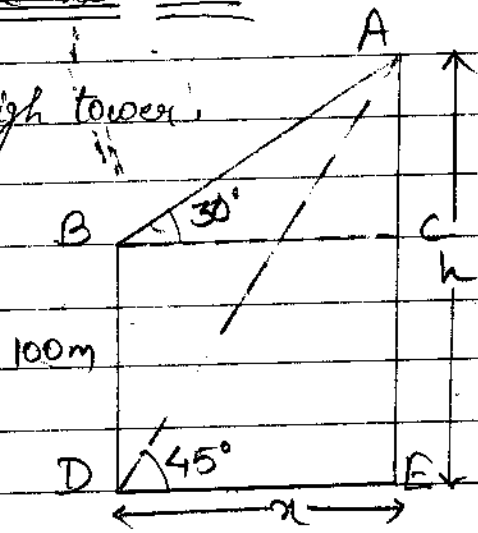 A
tower,
30°
B
C
h
100m
D
45°
E
x